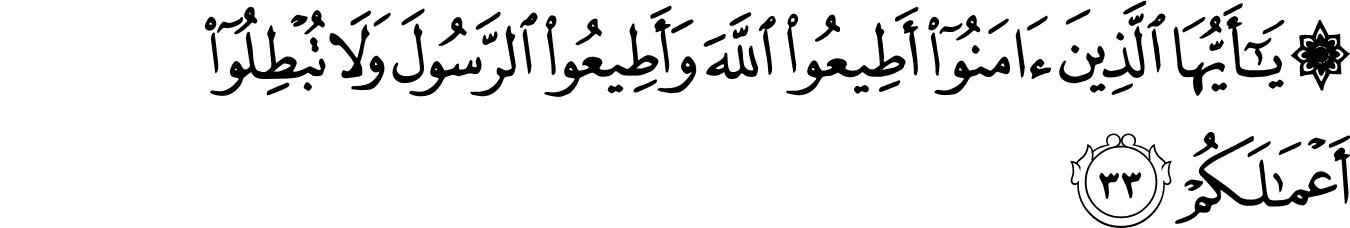 ۞ يَـٰٓأَيُّهَا ٱلَّذِينَ ءَامَنُوٓا۟ أَطِيعُوا۟ ٱللَّهَ وَأَطِيعُوا۟ ٱلرَّسُولَ وَلَا تُبْطِلُوٓا۟
أَعْمَـٰلَكُمْ ٣٣